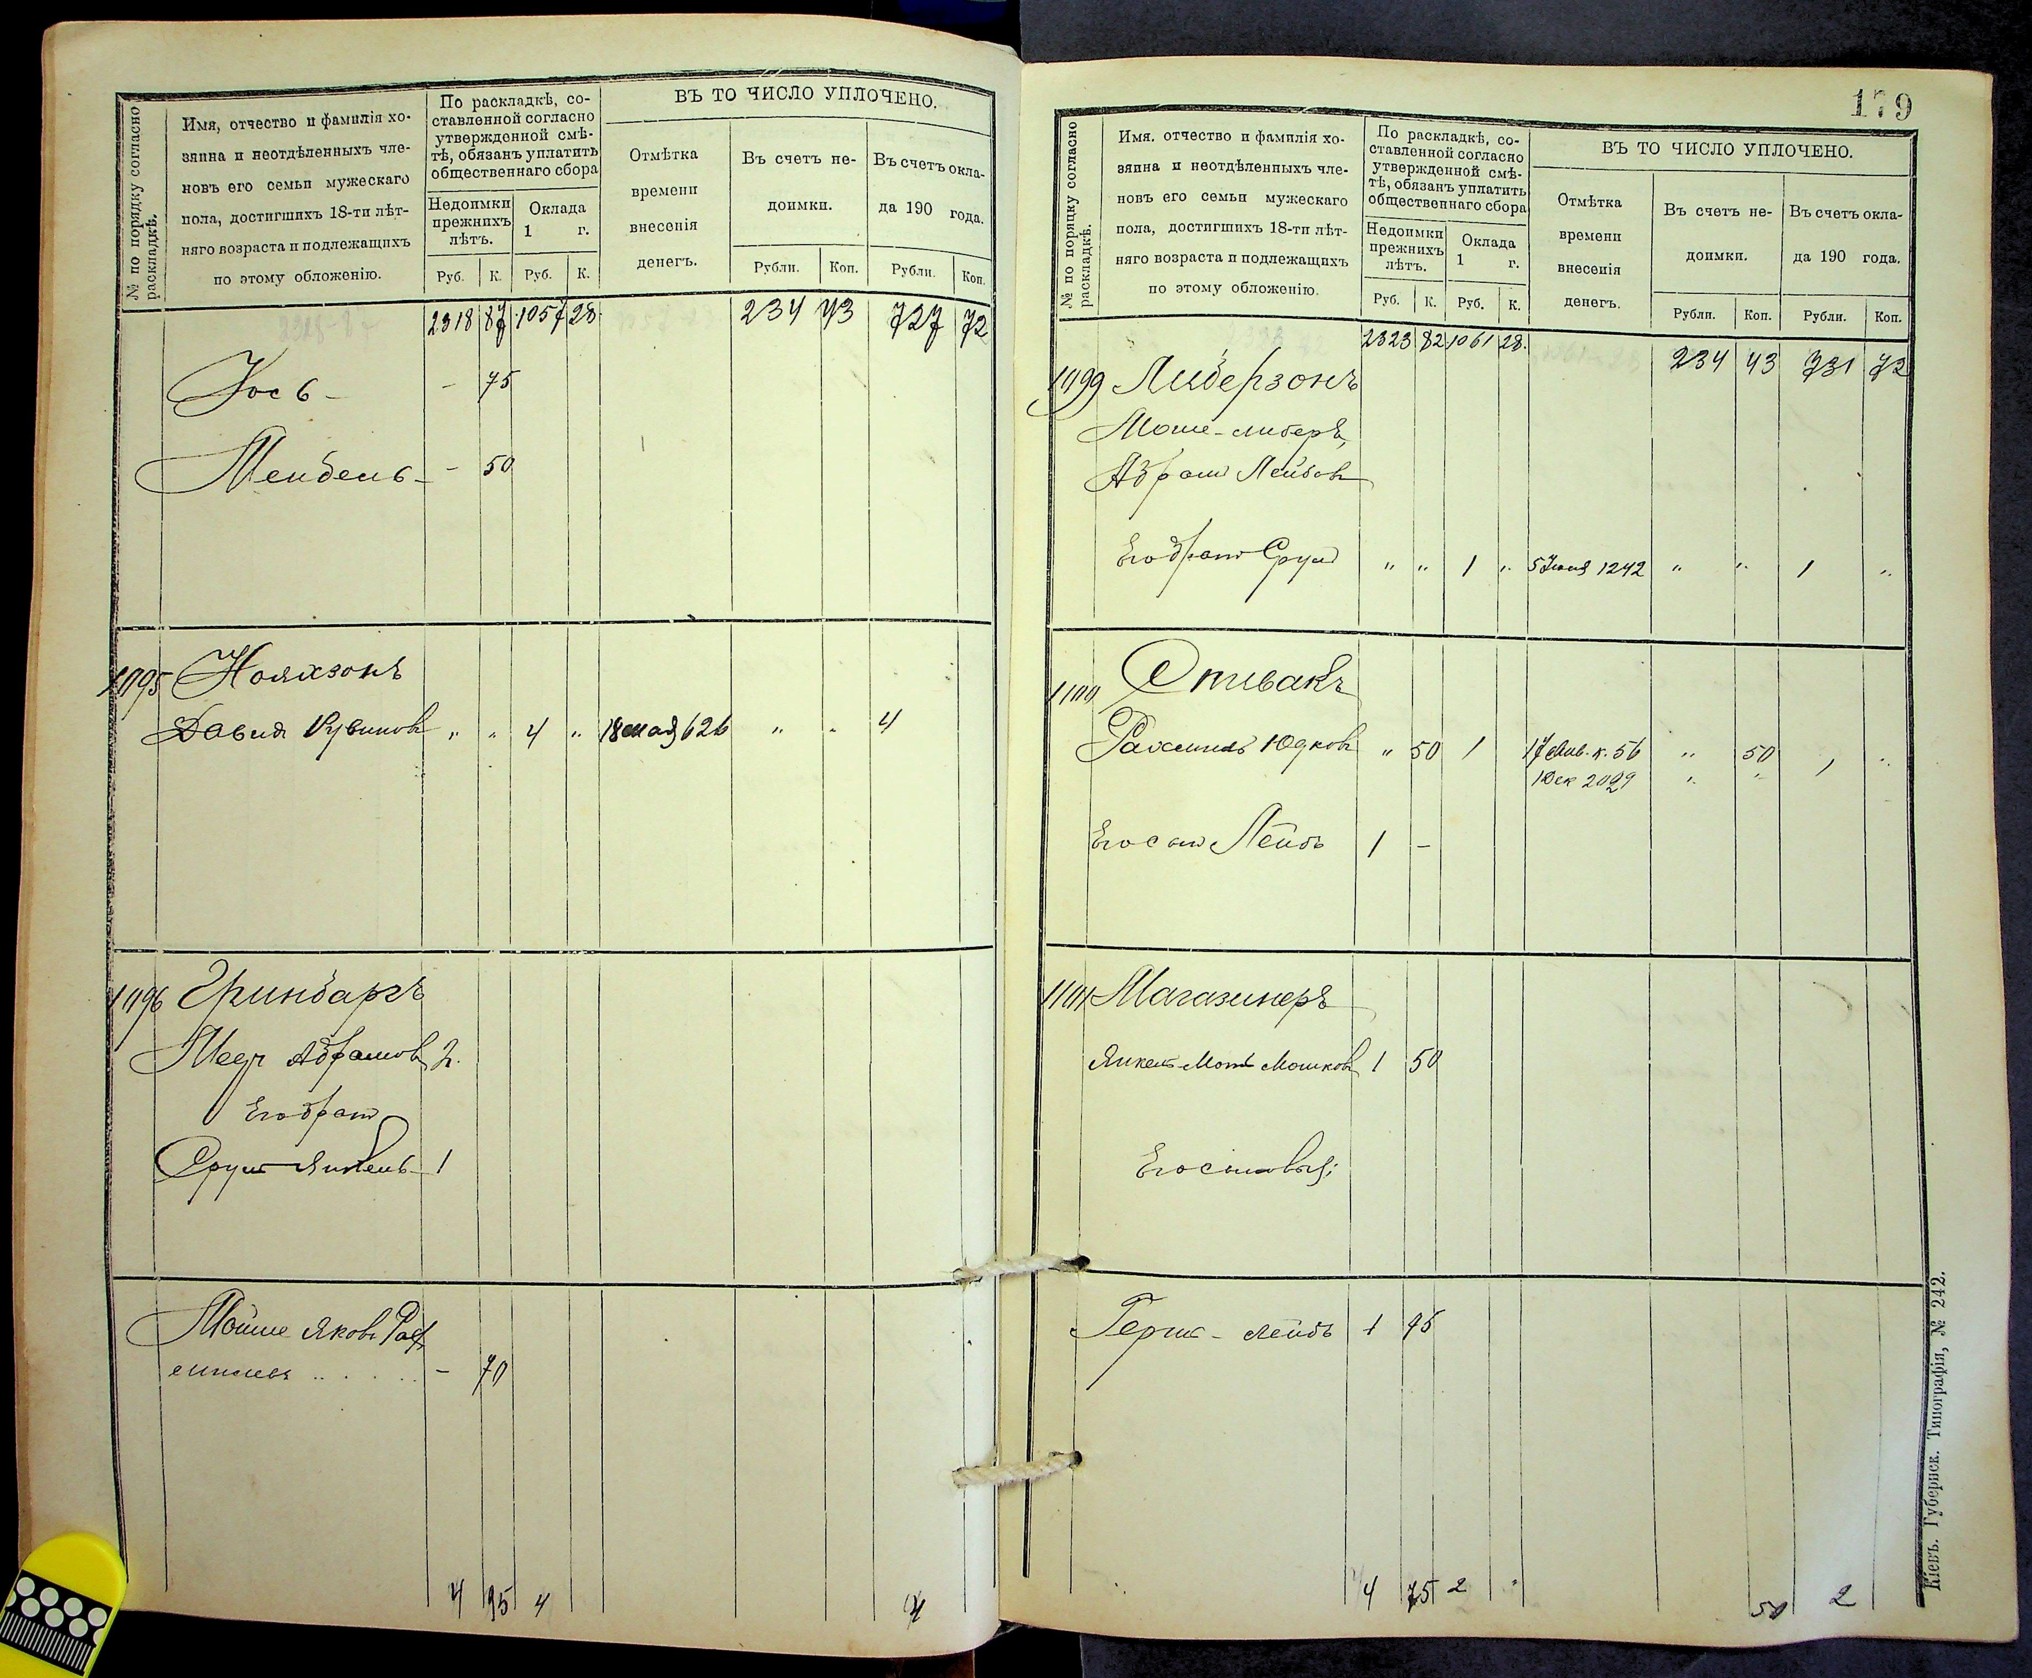 № по порядку согласно раскладкѣ.
Имя, отчество и фамилія хо-
зяина и неотдѣленныхъ чле-
новъ его семьи мужескаго
пола, достигшихъ 18-ти лѣт-
няго возраста и подлежащихъ
по этому обложенію.
По раскладкѣ, со-
ставленной согласно
утвержденной смѣ-
тѣ, обязанъ уплатить
общественнаго сбора
Недоимки
прежнихъ
лѣтъ.
Оклада
1 г.
Руб. К. Руб. К.
ВЪ ТО ЧИСЛО УПЛОЧЕНО.
Отмѣтка
времени
внесенія
денегъ.
Въ счетъ не-
доимки.
Въ счетъ окла-
да 190 года.
Рубли. Коп. Рубли. Коп.
2318 87 1057 28 234 43 727 72
Іось - - 75
Мендель - - 50
1095 Нояхзонъ
Давид Рувинов " " 4 " 18 мая 626 " " 4
1096 Гринбаргъ
Меер Абрамов 2.
Его брат
Сруль Янкель - 1
Мойше Яковъ
- 70
4 95 4 4
179
№ по порядку согласно раскладкѣ.
Имя. отчество и фамилія хо-
зяина и неотдѣленныхъ чле-
новъ его семьи мужескаго
пола, достигшихъ 18-ти лѣт-
няго возраста и подлежащихъ
по этому обложенію.
По раскладкѣ, со-
ставленной согласно
утвержденной смѣ-
тѣ, обязанъ уплатить
общественнаго сбора
Недоимки
прежнихъ
лѣтъ.
Оклада
1 г.
Руб. К. Руб. К.
ВЪ ТО ЧИСЛО УПЛОЧЕНО.
Отмѣтка
времени
внесенія
денегъ.
Въ счетъ не-
доимки.
Въ счетъ окла-
да 190 года.
Рубли. Коп. Рубли. Коп.
2323 82 1061 28. 234 43 731 72
1099 Либерзонъ
Моше-либеръ,
Абрам Лейбов
Его брат Сруль " " 1 " 5 Іюня 1242 " " 1 "
1100 Спивакъ
Рахмиль Юдков " 50 1 17 Янв. к. 56 " 50 1 "
1 Дек 2029 " "
Его сын Лейбъ 1 -
1101 Магазинеръ
Янкель-Мотъ Мошков 1 50
Его сыновья:
Герш - Лейбъ 1 75
4 75 2 " 50 2
Кіевъ. Губернск. Типографія, № 242.